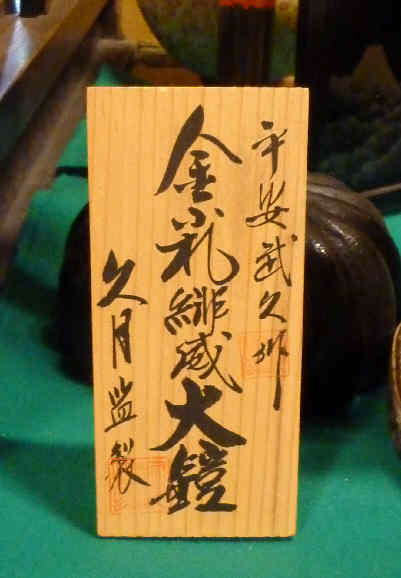 平安武久作
金小札緋威大鎧
久月監製